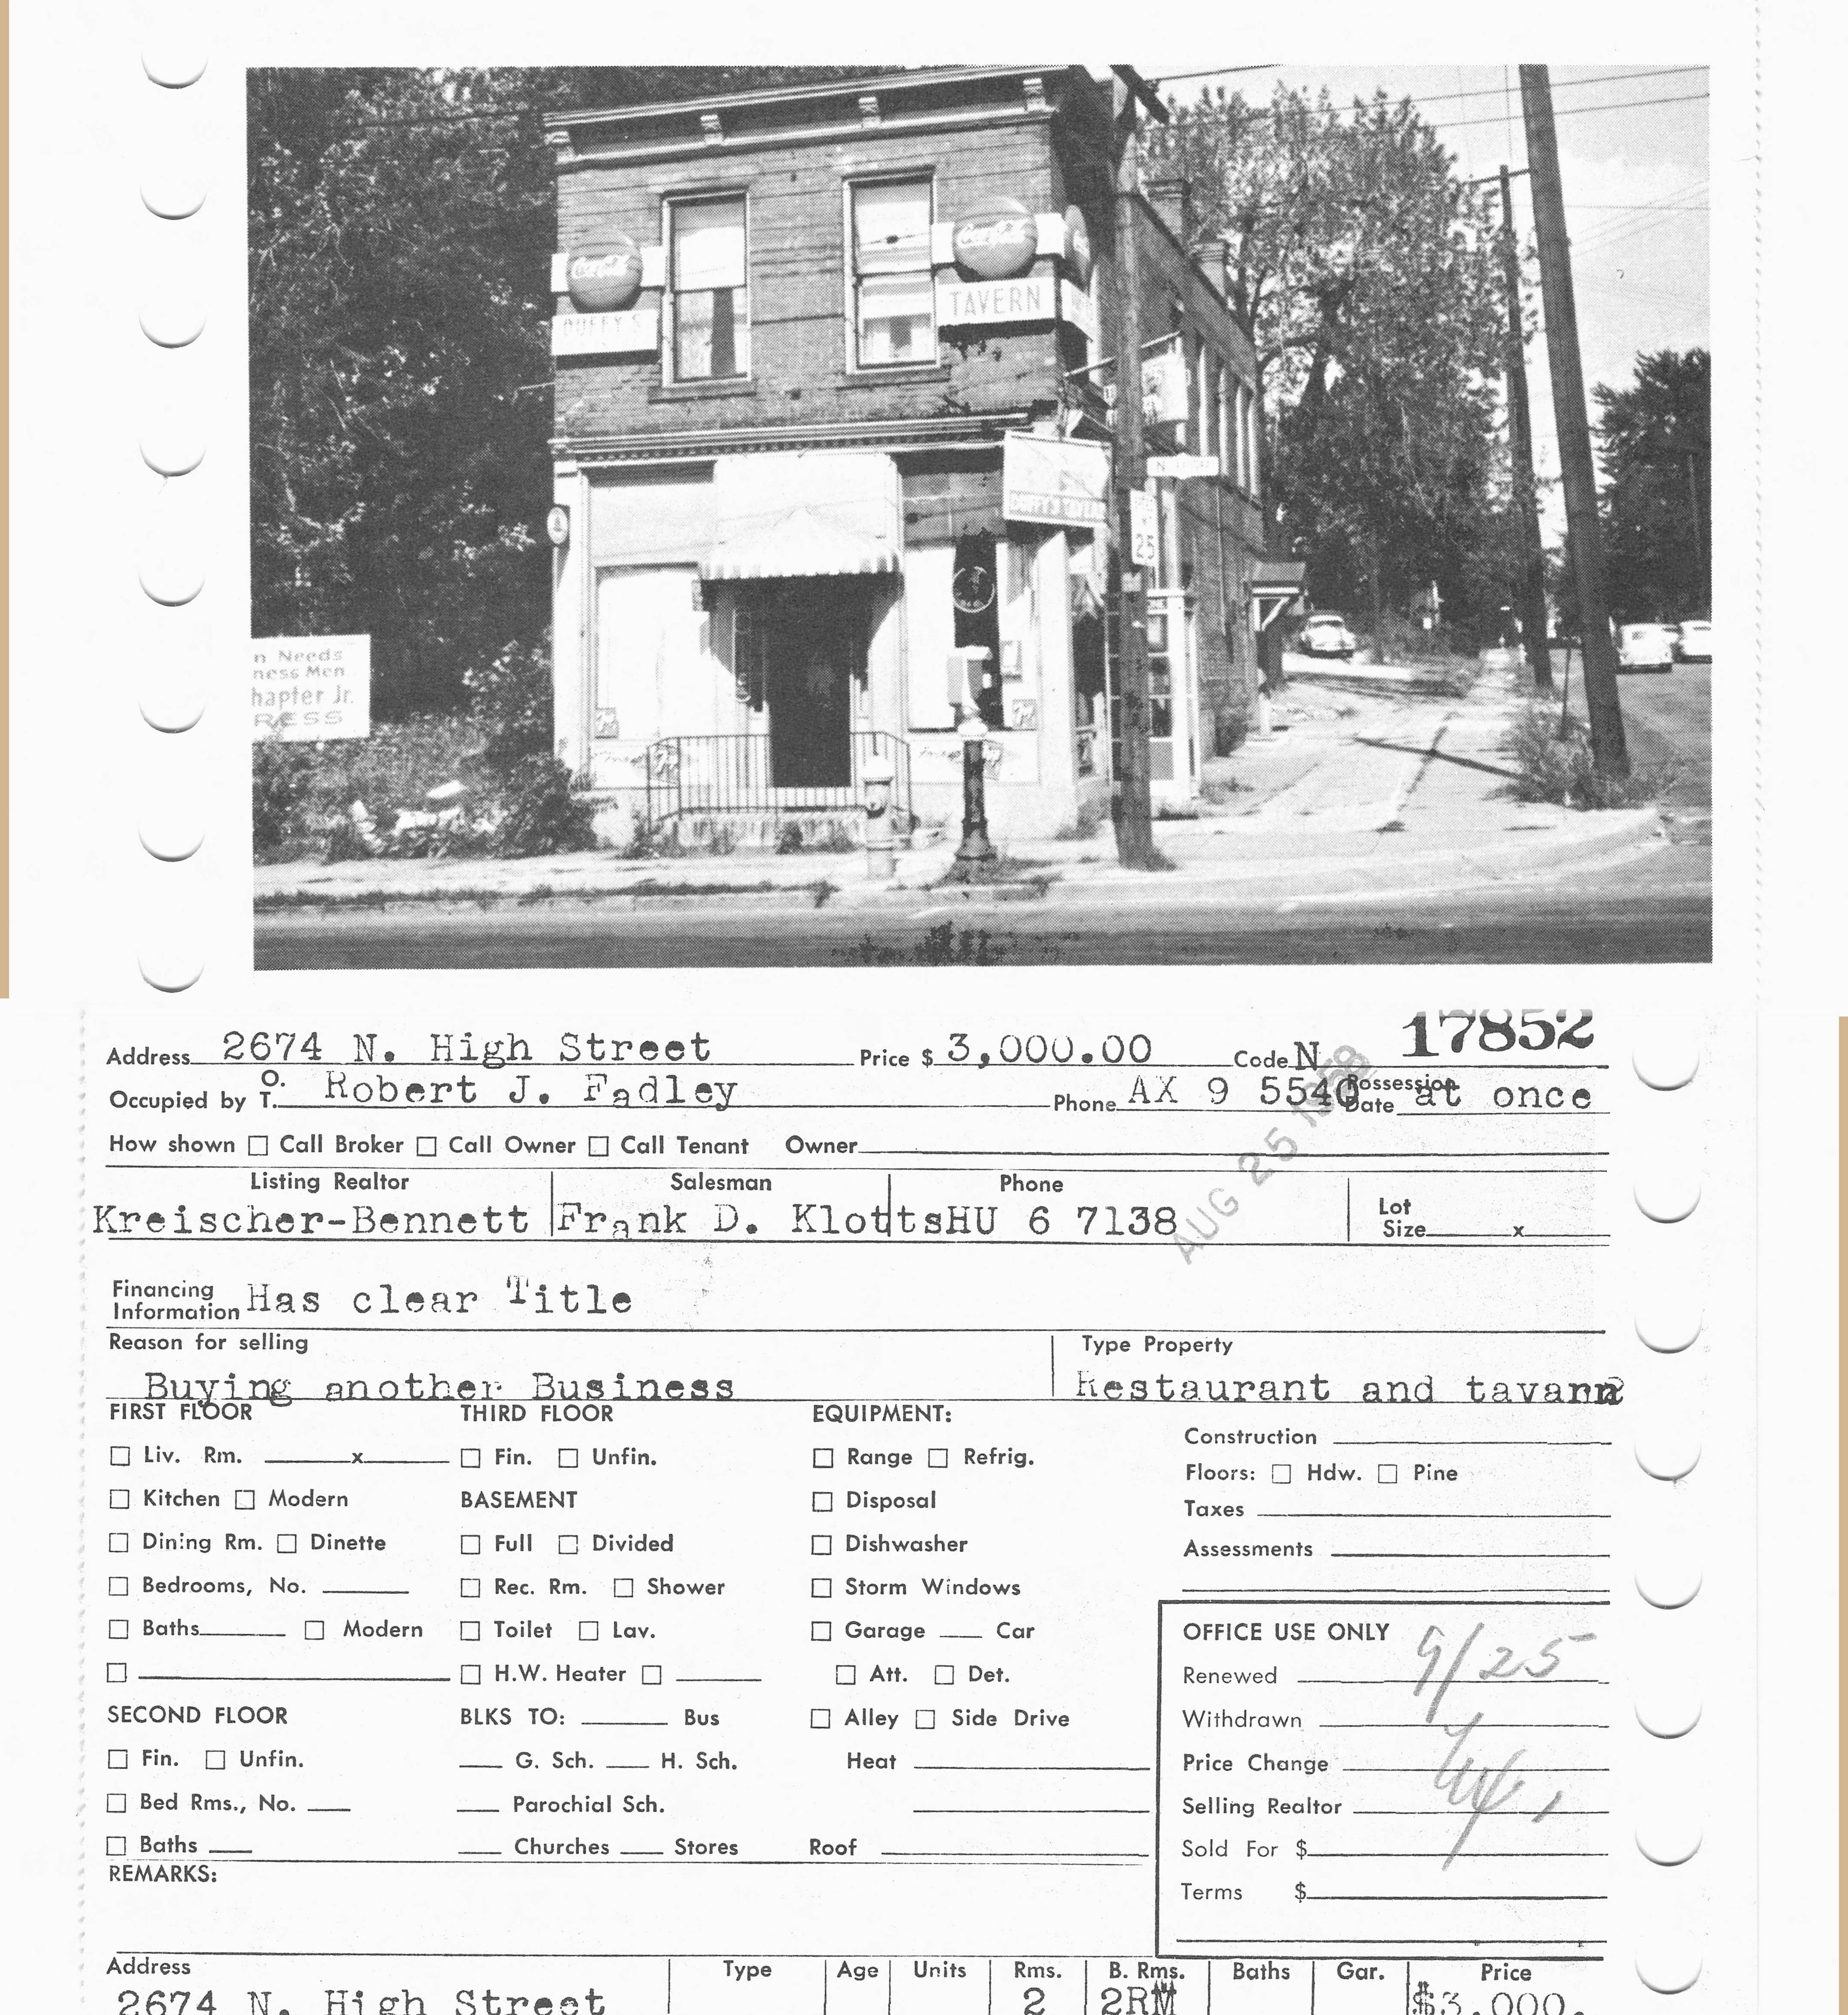 Coca-Cola
Coca-Cola
DUFFY'S
TAVERN
N
25
n Needs
ness Men
hapter Jr.
RESS
17852
Address 2674 N. High Street Price $ 3,000.00 Code N
Occupied by O. T. Robert J. Fadley Phone AX 9 5540 Possession Date at once
AUG 25 1958
How shown ☐ Call Broker ☐ Call Owner ☐ Call Tenant Owner
Listing Realtor Salesman Phone Lot Size x
Kreischer-Bennett Frank D. Klotts HU 6 7138
Financing Information Has clear Title
Reason for selling Type Property
Buying another Business Restaurant and tavann
FIRST FLOOR THIRD FLOOR EQUIPMENT:
Construction
☐ Liv. Rm. x ☐ Fin. ☐ Unfin. ☐ Range ☐ Refrig.
Floors: ☐ Hdw. ☐ Pine
☐ Kitchen ☐ Modern BASEMENT ☐ Disposal
Taxes
☐ Dining Rm. ☐ Dinette ☐ Full ☐ Divided ☐ Dishwasher
Assessments
☐ Bedrooms, No. ☐ Rec. Rm. ☐ Shower ☐ Storm Windows
☐ Baths ☐ Modern ☐ Toilet ☐ Lav. ☐ Garage Car
OFFICE USE ONLY
☐ ☐ H.W. Heater ☐ ☐ Att. ☐ Det.
Renewed 9/25
SECOND FLOOR BLKS TO: Bus ☐ Alley ☐ Side Drive
Withdrawn
☐ Fin. ☐ Unfin. G. Sch. H. Sch. Heat
Price Change
☐ Bed Rms., No. Parochial Sch.
Selling Realtor
☐ Baths Churches Stores Roof
Sold For $
REMARKS:
Terms $
Address Type Age Units Rms. B. Rms. Baths Gar. Price
2674 N. High Street 2 2RM $3,000.